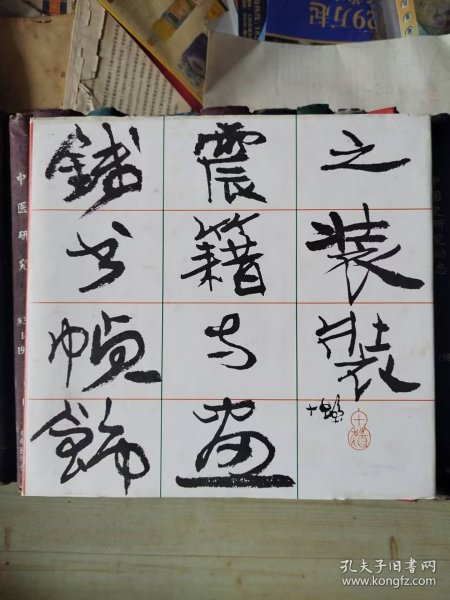 29万起
錢震之
书籍裝
幀与裝
飾畫
中医研究
孔夫子旧书网
www.kongfz.com